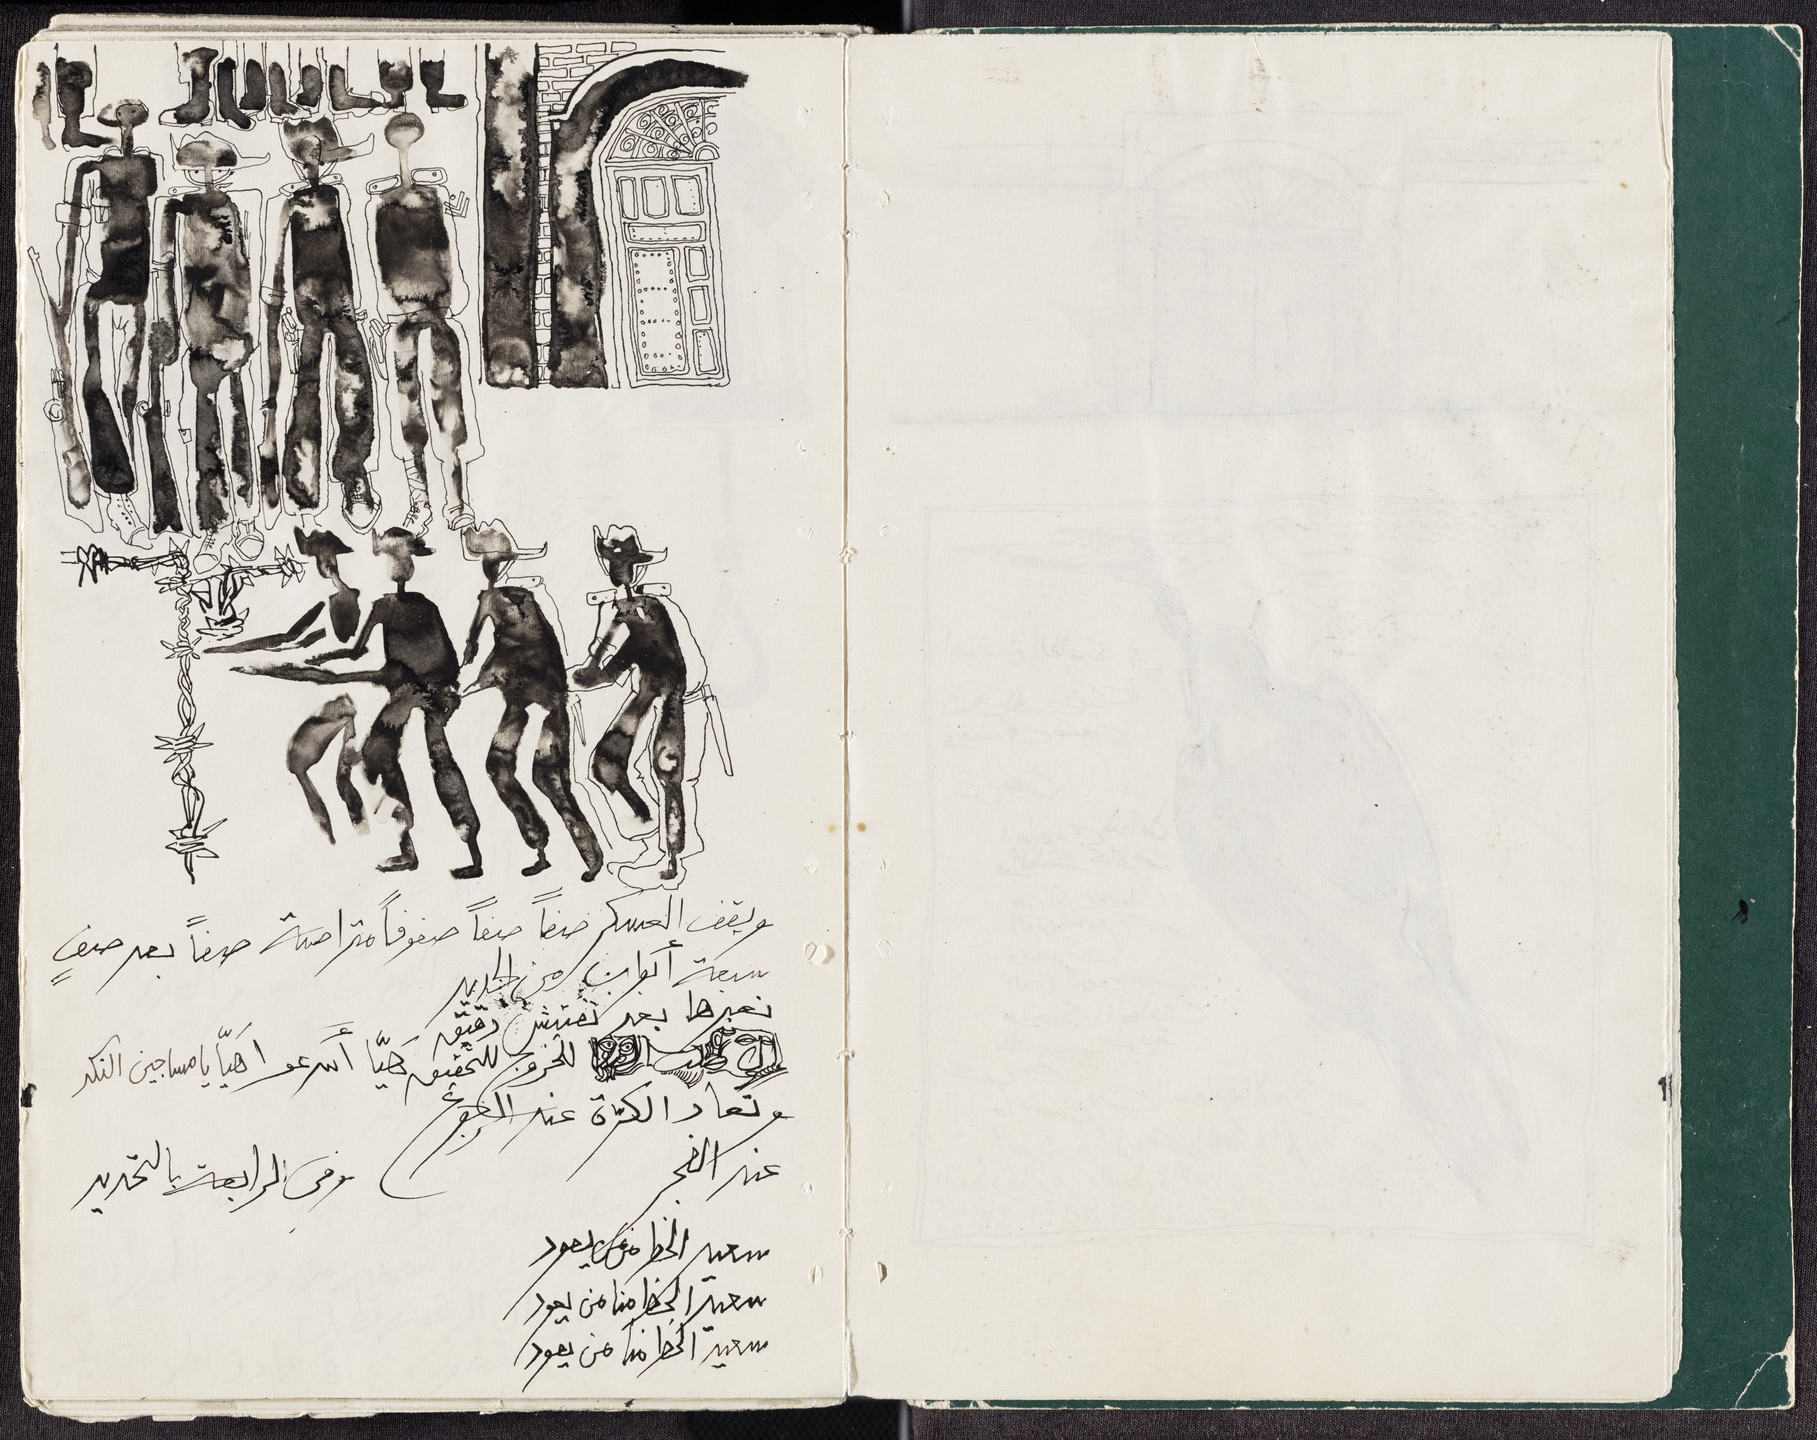 ويقف العسكر صفاً صفاً صفوفاً متراصة صفاً بعد صفٍ
سبعة أبواب من الحديد
نعبرها بعد تفتيش دقيق
للخروج للتحقيق هَيّا أسرعوا هَيّا يا مساجين النكد
وتعاد الكرّة عند الرجوع
عند الفجر
وفي الرابعة بالتحديد
سعيد الحظ من يعود
سعيد الحظ منا من يعود
سعيد الحظ منا من يعود